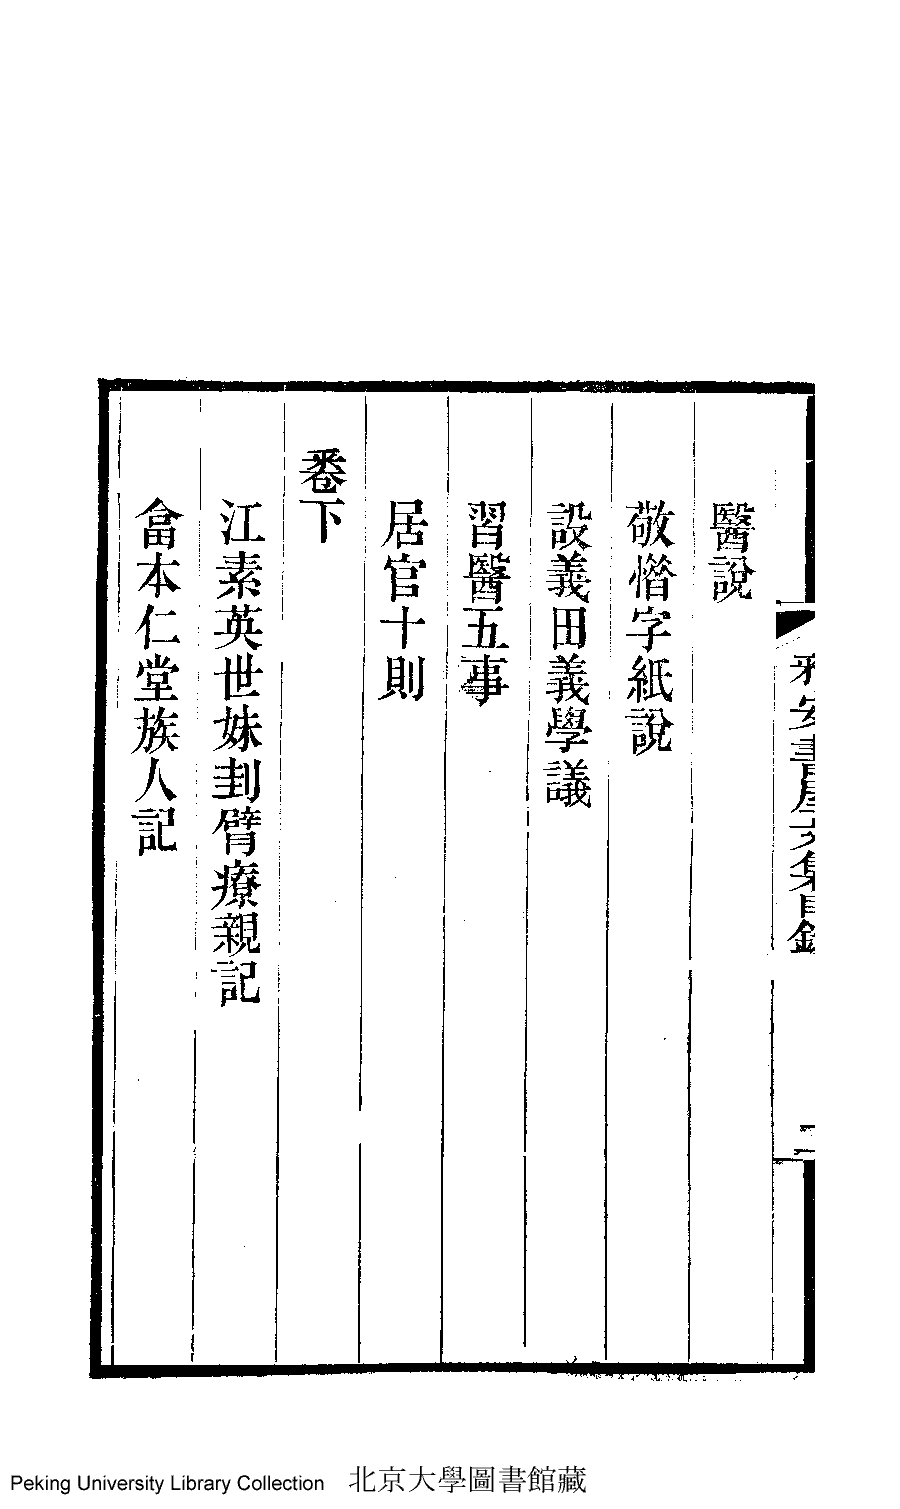 醫說
敬惜字紙說
設義田義學議
習醫五事
居官十則
卷下
江素英世妹刲臂療親記
畣本仁堂族人記
安書房文集目錄
二
Peking University Library Collection 北京大學圖書館藏